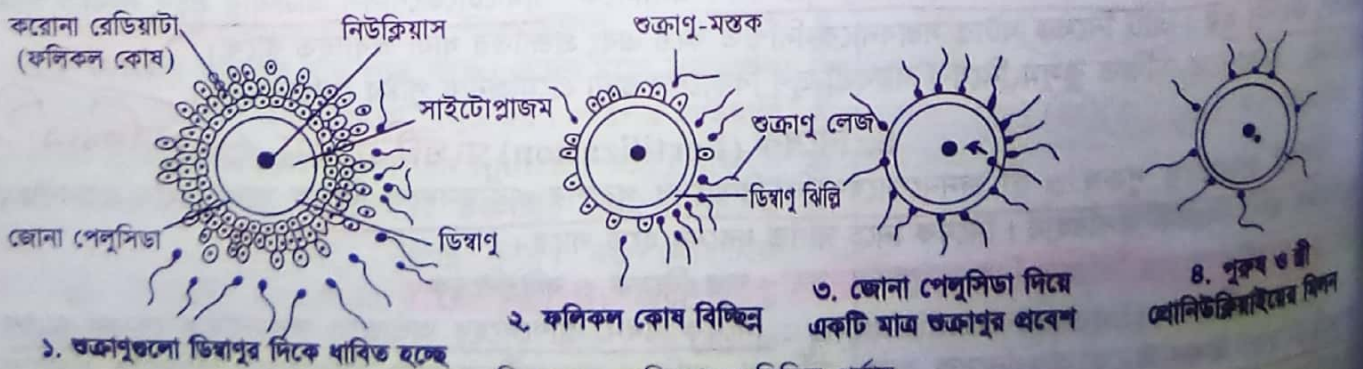 করোনা রেডিয়াটা
(ফলিকল কোষ)
নিউক্লিয়াস
সাইটোপ্লাজম
জোনা পেলুসিডা
ডিম্বাণু
১. শুক্রাণুগুলো ডিম্বাণুর দিকে ধাবিত হচ্ছে
শুক্রাণু-মস্তক
শুক্রাণু লেজ
ডিম্বাণু ঝিল্লি
২. ফলিকল কোষ বিচ্ছিন্ন
৩. জোনা পেলুসিডা দিয়ে
একটি মাত্র শুক্রাণুর প্রবেশ
৪. পুরুষ ও স্ত্রী
প্রোনিউক্লিয়াইয়ের মিলন